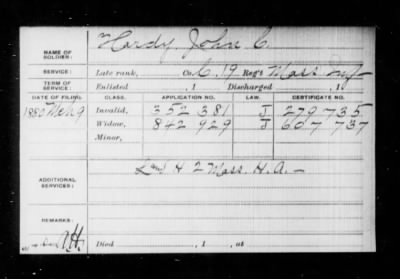 Hardy, John C.
NAME OF SOLDIER:
SERVICE: Late rank, Co. C, 19 Reg't Mass Inf
TERM OF SERVICE: Enlisted , 1 Discharged , 1
DATE OF FILING. CLASS. APPLICATION NO. LAW. CERTIFICATE NO.
1880 Invalid, 352 381 J 279 735
Widow, 842 929 J 607 737
Minor,
ADDITIONAL SERVICES: H 2 Mass. H. A. —
REMARKS:
Died , 1 , at